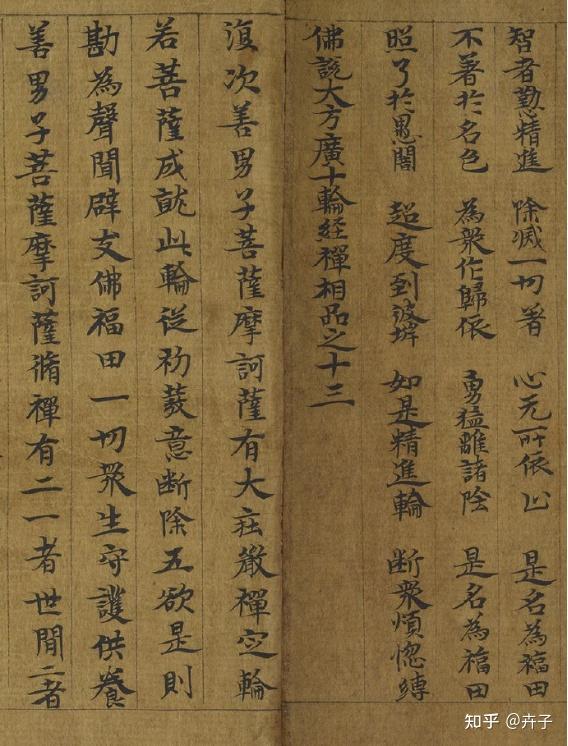 智者勤精進　除滅一切著　心无所依止　是名為福田
不著於名色　為衆作歸依　勇猛離諸陰　是名為福田
照了於愚闇　超度到彼岸　如是精進輪　断衆煩惚縛
佛說大方廣十輪経禪相品之十三
復次善男子菩薩摩訶薩有大莊嚴禪㝎輪
若菩薩成就此輪從初發意断除五欲是則
勘為聲聞辟支佛福田一切衆生守護供養
善男子菩薩摩訶薩脩禪有二一者世間二者
知乎 @卉子